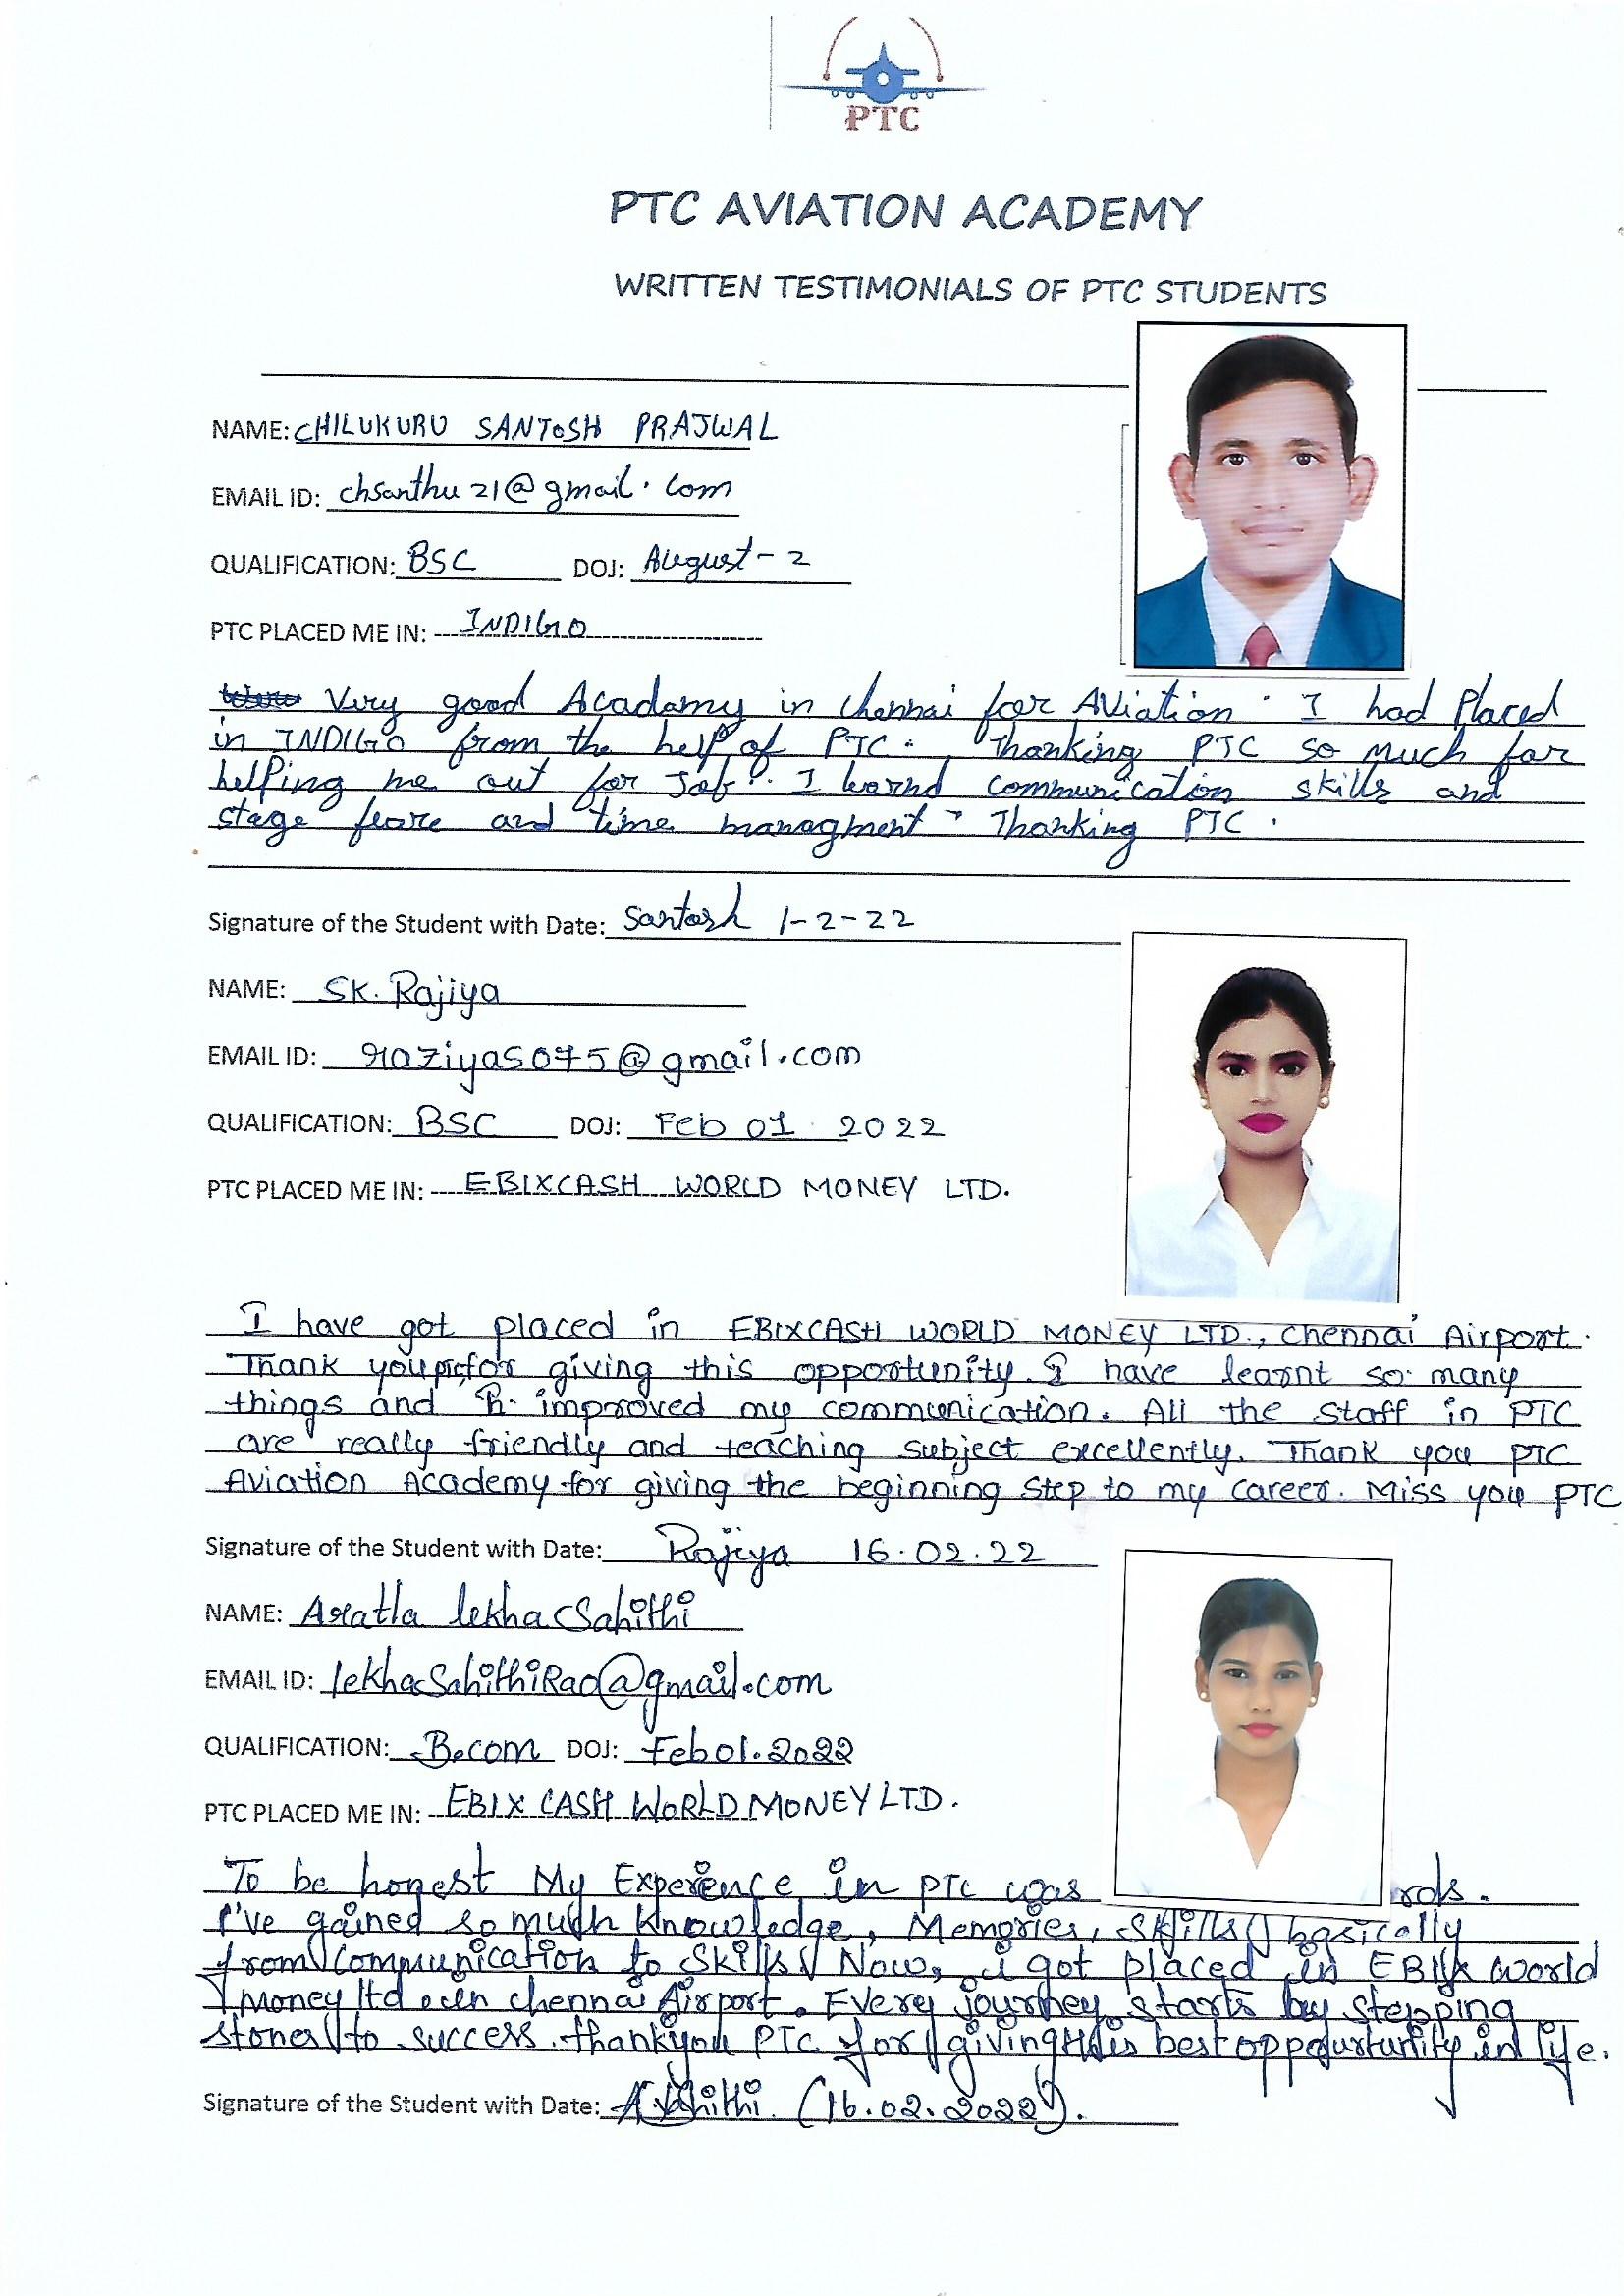 PTC
PTC AVIATION ACADEMY
WRITTEN TESTIMONIALS OF PTC STUDENTS
NAME: CHILUKURU SANTOSH PRAJWAL
EMAIL ID: chsanthu21@gmail.com
QUALIFICATION: BSC DOJ: August-2
PTC PLACED ME IN: INDIGO
Very good Acadamy in chennai for Aviation. I had Placed
in INDIGO from the help of PTC. Thanking PTC so much for
helping me out for Job. I learnd communication skills and
stage feare and time managment. Thanking PTC.
Signature of the Student with Date: Santosh 1-2-22
NAME: SK. Rajiya
EMAIL ID: raziyas075@gmail.com
QUALIFICATION: BSC DOJ: Feb 01 2022
PTC PLACED ME IN: EBIXCASH WORLD MONEY LTD.
I have got placed in EBIXCASH WORLD MONEY LTD., Chennai Airport.
Thank you for giving this opportunity. I have learnt so many
things and improved my communication. All the staff in PTC
are really friendly and teaching subject excellently. Thank you PTC
Aviation Academy for giving the beginning step to my career. Miss you PTC
Signature of the Student with Date: Rajiya 16.02.22
NAME: Aratla lekha Sahithi
EMAIL ID: lekhaSahithiRao@gmail.com
QUALIFICATION: B.com DOJ: Feb 01.2022
PTC PLACED ME IN: EBIX CASH WORLD MONEY LTD.
To be honest My Experience in PTC was rds.
I've gained so much knowledge, Memories, Skills basically
from Communication to Skills Now, i got placed in EBIX world
Money ltd in chennai Airport. Every journey starts by stepping
stones to success. thankyou PTC for giving this best oppourtunity in life.
Signature of the Student with Date: Sahithi. (16.02.2022).